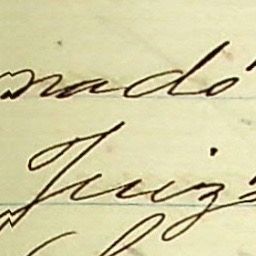 nado
Juiz